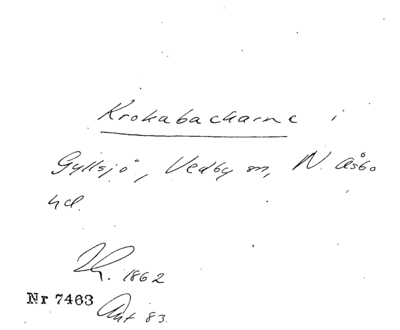 Krokabackarne i
Gyllsjö, Vedby sn, N. Åsbo
hd.
1862
Nr 7463
Ant 83.